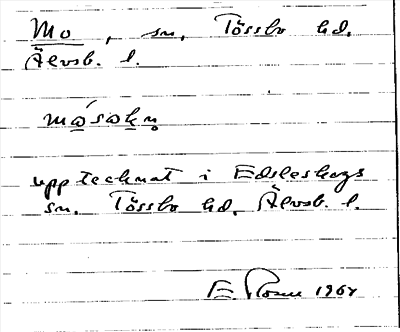 Mo, sn, Tössbo hd.
Älvsb. l.
måsokn
upptecknat i Edsleskogs
sn. Tössbo hd, Älvsb. l.
E. 1964